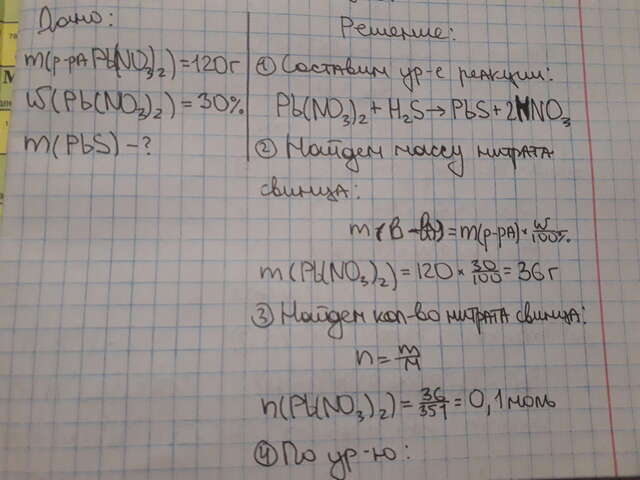 Дано:
m(р-ра Pb(NO₃)₂)=120г
W(Pb(NO₃)₂)=30%
m(PbS)-?
Решение:
① Составим ур-е реакции:
Pb(NO₃)₂+H₂S→PbS+2HNO₃
② Найдем массу нитрата
свинца:
m(в-ва)=m(р-ра)×W/100%
m(Pb(NO₃)₂)=120×30/100=36г
③ Найдем кол-во нитрата свинца:
n=m/M
n(Pb(NO₃)₂)=36/351=0,1моль
④ По ур-ю: